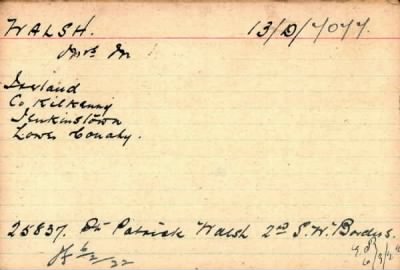 WALSH. 13/D/7077.
Mrs M
Ireland
Co Kilkenny
Jenkinstown
Lower Conahy.
25837. Pte Patrick Walsh 2nd S. W. Borders.